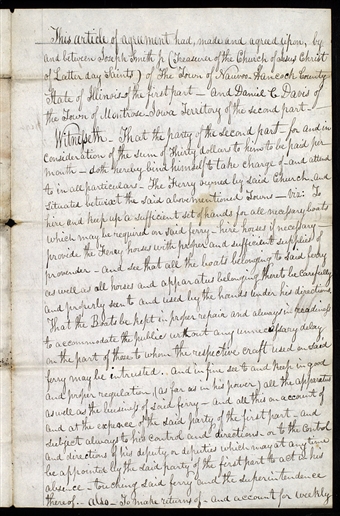 This article of agreement had, made and agreed upon, by
and between Joseph Smith jr (Treasurer of the Church of Jesus Christ
of Latter day Saints) of The Town of Nauvoo Hancock County
State of Illinois of the first part — And Daniel C. Davis of
the Town of Montrose Iowa Territory of the second part —
Witnesseth — That the party of the second part — for and in
consideration of the sum of thirty dollars to him to be paid per
month — doth hereby bind himself to take charge of — and attend
to in all particulars — The Ferry owned by said Church and
situated betwixt the said above mentioned Towns — Viz: To
hire and keep up a sufficient set of hands for all necessary boats
which may be required on said ferry — hire horses if necessary —
provide the Ferry horses with proper and sufficient supplies of
provender — and see that all the boats belonging to said ferry
as well as all horses and apparatus belonging thereto be carefully
and properly seen to and used by the hands under his directions
That the Boats be kept in proper repair and always in readiness
to accommodate the public without any unnecessary delay
on the part of those to whom the respective craft used on said
ferry may be intrusted.. And in fine see to and keep in good
and proper regulation, (as far as in his power) all the apparatus
as well as the business of said ferry — and all this on account of
and at the expence of the said party of the first part — and
subject always to his control and directions — or to the control
and directions of his deputy or deputies which may at any time
be appointed by the said party of the first part to act in his
absence — touching said ferry and the superintendence
thereof — Also — To make returns of — and account for weekly